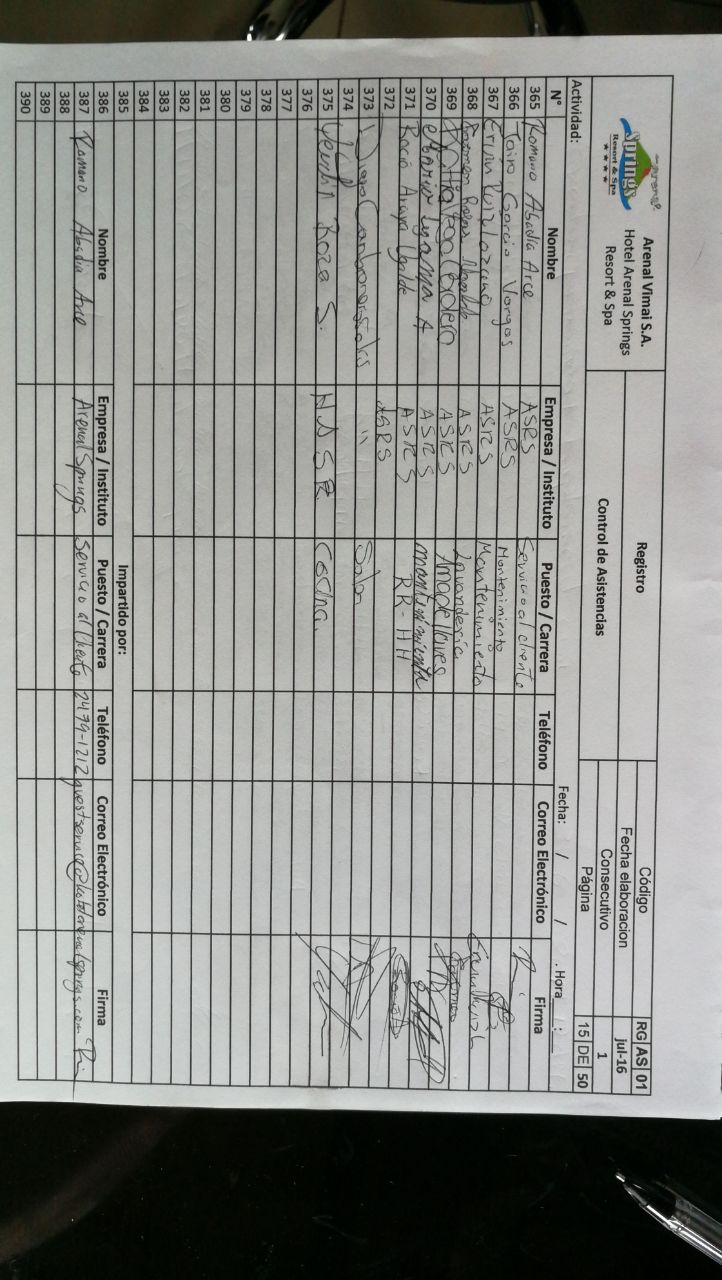 Arenal
Springs
Resort & Spa
★★★★
Arenal Vimai S.A.
Hotel Arenal Springs
Resort & Spa
Registro
Control de Asistencias
Código RG AS 01
Fecha elaboracion jul-16
Consecutivo 1
Página 15 DE 50
Actividad: Fecha: / / . Hora : 
N° Nombre Empresa / Instituto Puesto / Carrera Teléfono Correo Electrónico Firma
365 Romano Abadia Arce ASRS Servicio al cliente
366 Jairo Garcia Vargas ASRS Mantenimiento
367 Ruiz Lozano ASRS Mantenimiento
368 Rojas ASRS Lavanderia
369 Cordero ASRS Amadellaves
370 A ASRS mantenimiento
371 Rocio Araya Ugalde ASRS RR-HH
372 ASRS
373 " Salon
374
375 Roza S. H A S R Cocina.
376
377
378
379
380
381
382
383
384
385 Impartido por:
386 Nombre Empresa / Instituto Puesto / Carrera Teléfono Correo Electrónico Firma
387 Romano Abadia Arce Arenal Springs Servicio al Cliente 2479-1212 guestservice@hotelarenalsprings.com
388
389
390